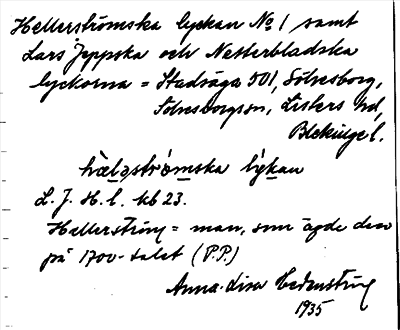 Hellerströmska lyckan No 1 samt
Lars Jeppska och Nesterbladska
lyckorna = Stadsäga 501, Sölvesborg,
Sölvesborgson, Listers hd,
Blekinge l.
hæləströmska lýkan
L. J. H. l. kb 23.
Hellerström = man, som ägde den
på 1700-talet (P.P.)
Anna-Lisa Hedenström
1935